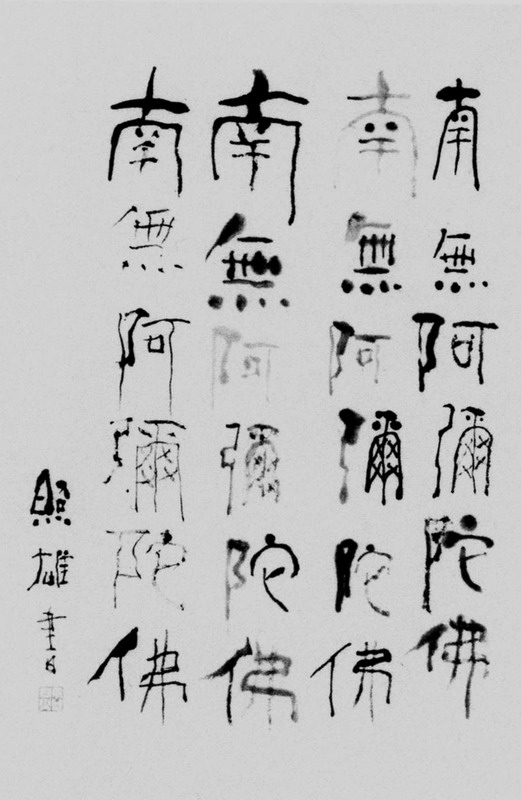 南無阿彌陀佛
南無阿彌陀佛
南無阿彌陀佛
南無阿彌陀佛
照雄書